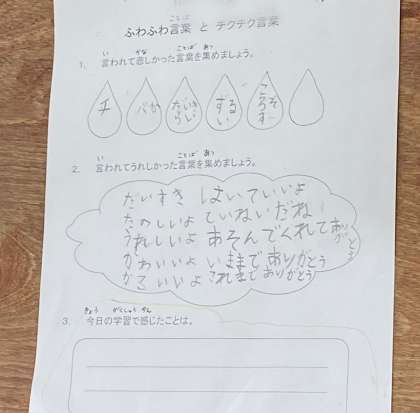 ふわふわ言葉 と チクチク言葉
1. 言われて悲しかった言葉を集めましょう。
バカ
だいきらい
ずるい
ころすぞ
2. 言われてうれしかった言葉を集めましょう。
だいすき はいていいよ
たのしいよ ていねいだね
うれしいよ あそんでくれてありがとう
かわいいよ いままでありがとう
かっこいいよ これまでありがとう
3. 今日の学習で感じたことは。